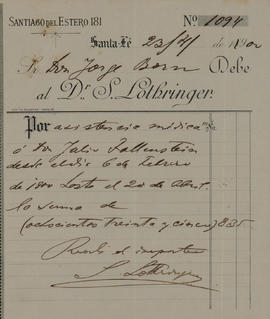 SANTIAGO DEL ESTERO 181
Nº 1094
Santa-Fé 23/4/ de 190
Sr Don Jorge Born Debe
al Dr. S. Lothringer.
Por asistencia médica
á Dn Julio
desde el dia 6 de Febrero
de 1900 hasta el 20 de Abril
la suma de
(ochocientos treinta y cinco) 835
Recibí el importe
S. Lothringer